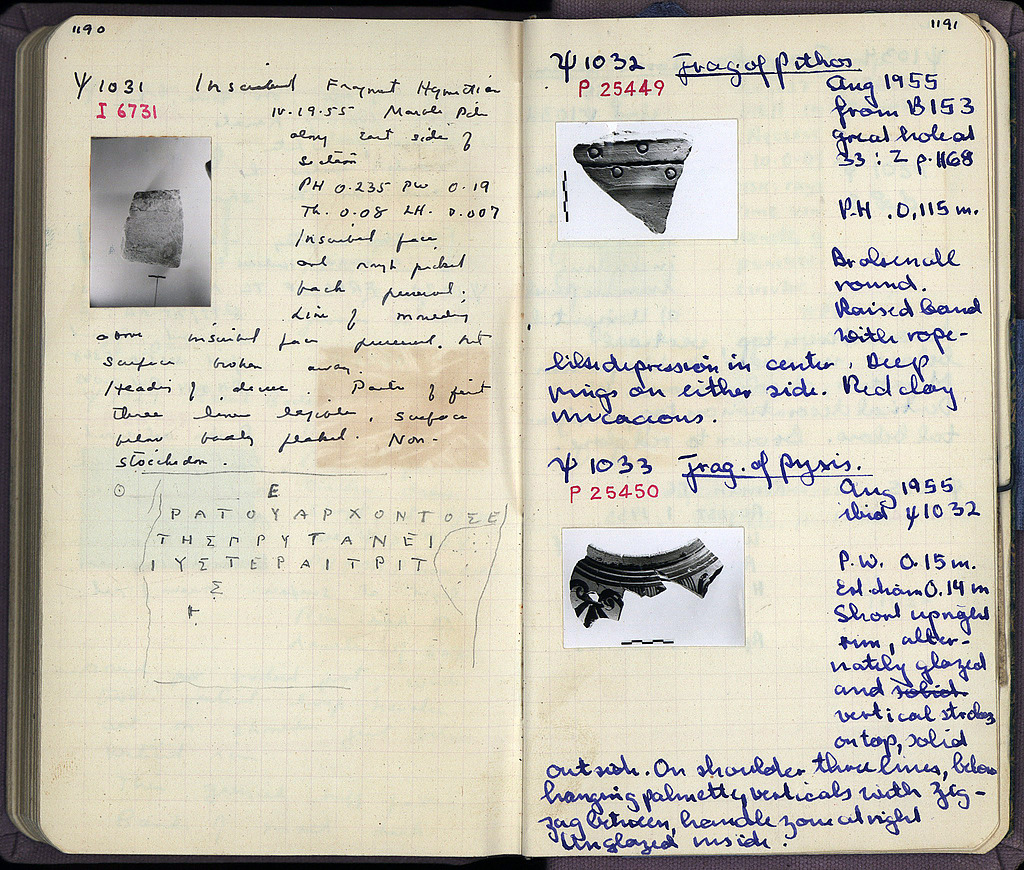 1190
Ψ 1031 Inscribed Fragment Hymettian
I 6731
IV.19.55 Marble Pile
along East side of
section
PH 0.235 PW 0.19
Th. 0.08 LH. 0.007
Inscribed face
and rough picked
back preserved;
Line of moulding
above inscribed face preserved, but
surface broken away.
Heading of decree. Parts of first
three lines legible, surface
below badly flaked. Non-
stoichedon.
Ε
ΡΑΤΟΥΑΡΧΟΝΤΟΣΕ
ΤΗΣΠΡΥΤΑΝΕΙ
ΙΥΣΤΕΡΑΙΤΡΙΤ
Σ
Η
1191
Ψ 1032 Frag. of Pithos
P 25449
Aug 1955
from B153
great hole at
33 : Z p. 1168
P.H. 0,115 m.
Broken all
round.
Raised band
with rope-
like depression in center. Deep
rings on either side. Red clay
micacious.
Ψ 1033 Frag. of Pyxis.
P 25450
Aug 1955
ibid Ψ1032
P.W. 0.15 m.
Est. diam 0.14 m
Short upright
rim, alter-
nately glazed
and solid
vertical strokes
on top, solid
outside. On shoulder three lines, below
hanging palmette, verticals with zig-
zag between, handle zone at right
Unglazed inside.